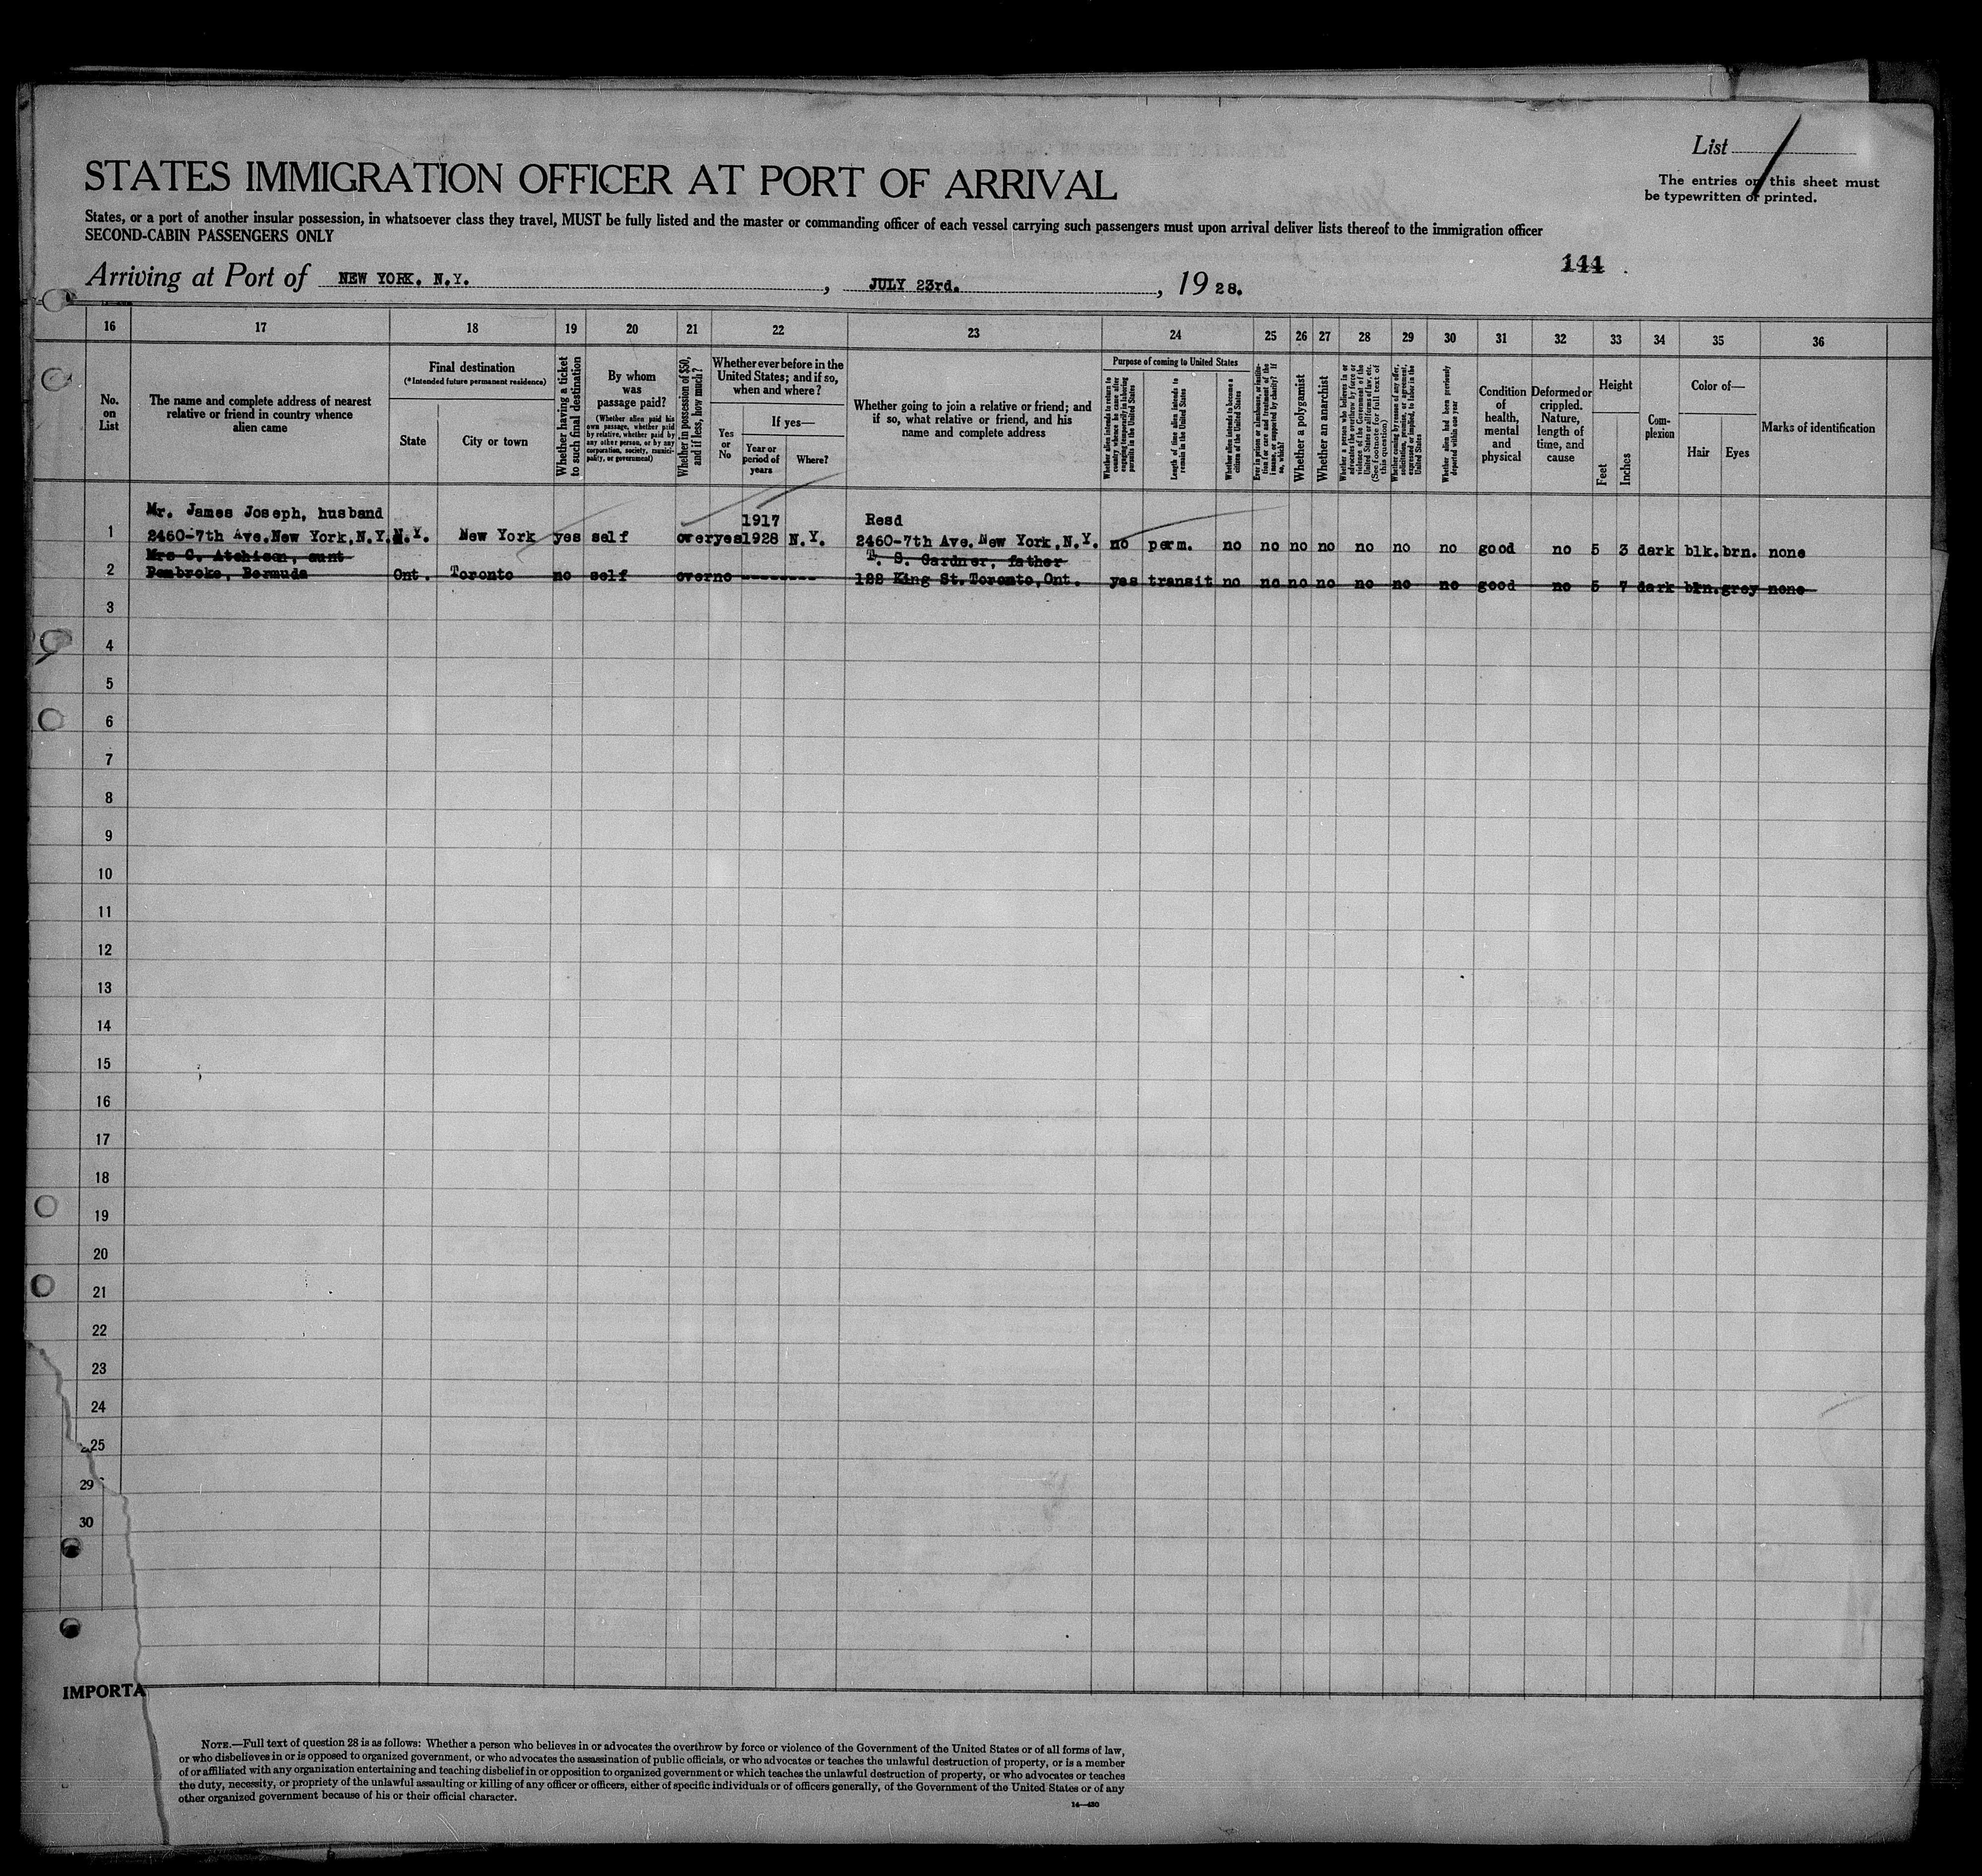 List
The entries on this sheet must
be typewritten or printed.
STATES IMMIGRATION OFFICER AT PORT OF ARRIVAL
States, or a port of another insular possession, in whatsoever class they travel, MUST be fully listed and the master or commanding officer of each vessel carrying such passengers must upon arrival deliver lists thereof to the immigration officer
SECOND-CABIN PASSENGERS ONLY
144
Arriving at Port of NEW YORK. N.Y. , JULY 23rd. , 19 28.
16 17 18 19 20 21 22 23 24 25 26 27 28 29 30 31 32 33 34 35 36
No. on List
The name and complete address of nearest relative or friend in country whence alien came
Final destination
(*Intended future permanent residence)
State
City or town
Whether having a ticket to such final destination
By whom was passage paid?
(Whether alien paid his own passage, whether paid by relative, whether paid by any other person, or by any corporation, society, municipality, or government)
Whether in possession of $50, and if less, how much?
Whether ever before in the United States; and if so, when and where?
Yes or No
If yes—
Year or period of years
Where?
Whether going to join a relative or friend; and if so, what relative or friend, and his name and complete address
Purpose of coming to United States
Whether alien intends to return to country whence he came after engaging temporarily in laboring pursuits in the United States
Length of time alien intends to remain in the United States
Whether alien intends to become a citizen of the United States
Ever in prison or almshouse, or institution for care and treatment of the insane, or supported by charity? If so, which?
Whether a polygamist
Whether an anarchist
Whether a person who believes in or advocates the overthrow by force or violence of the Government of the United States or all forms of law, etc. (See footnote for full text of this question)
Whether coming by reason of any offer, solicitation, promise, or agreement, expressed or implied, to labor in the United States
Whether alien had been previously deported within one year
Condition of health, mental and physical
Deformed or crippled. Nature, length of time, and cause
Height
Feet
Inches
Complexion
Color of—
Hair
Eyes
Marks of identification
Mr. James Joseph, husband 1917 Resd
1 2460-7th Ave.New York,N.Y. N.Y. New York yes self over yes 1928 N.Y. 2460-7th Ave. New York,N.Y. no perm. no no no no no no no good no 5 3 dark blk. brn. none
Mrs C. Atchison, aunt T. S. Gardner, father
2 Pembroke, Bermuda Ont. Toronto no self over no -------- 188 King St. Toronto, Ont. yes transit no no no no no no no good no 5 7 dark brn. grey none
3
4
5
6
7
8
9
10
11
12
13
14
15
16
17
18
19
20
21
22
23
24
25
29
30
IMPORTA
NOTE.—Full text of question 28 is as follows: Whether a person who believes in or advocates the overthrow by force or violence of the Government of the United States or of all forms of law,
or who disbelieves in or is opposed to organized government, or who advocates the assassination of public officials, or who advocates or teaches the unlawful destruction of property, or is a member
of or affiliated with any organization entertaining and teaching disbelief in or opposition to organized government or which teaches the unlawful destruction of property, or who advocates or teaches
the duty, necessity, or propriety of the unlawful assaulting or killing of any officer or officers, either of specific individuals or of officers generally, of the Government of the United States or of any
other organized government because of his or their official character.
14—430